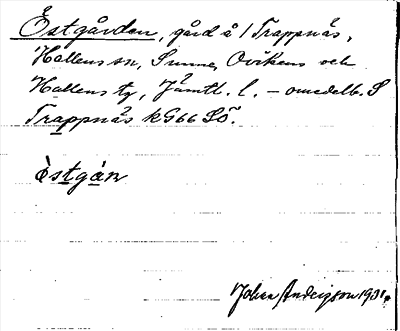 Èstgården, gård å 1 Trappnäs,
Hallens sn, Sunne, Ovikens och
Hallens tg, Jämtl. l. – omedelb. S
Trappnäs k G66 SÖ.
Èstgàn
Johan Anderson 1931.